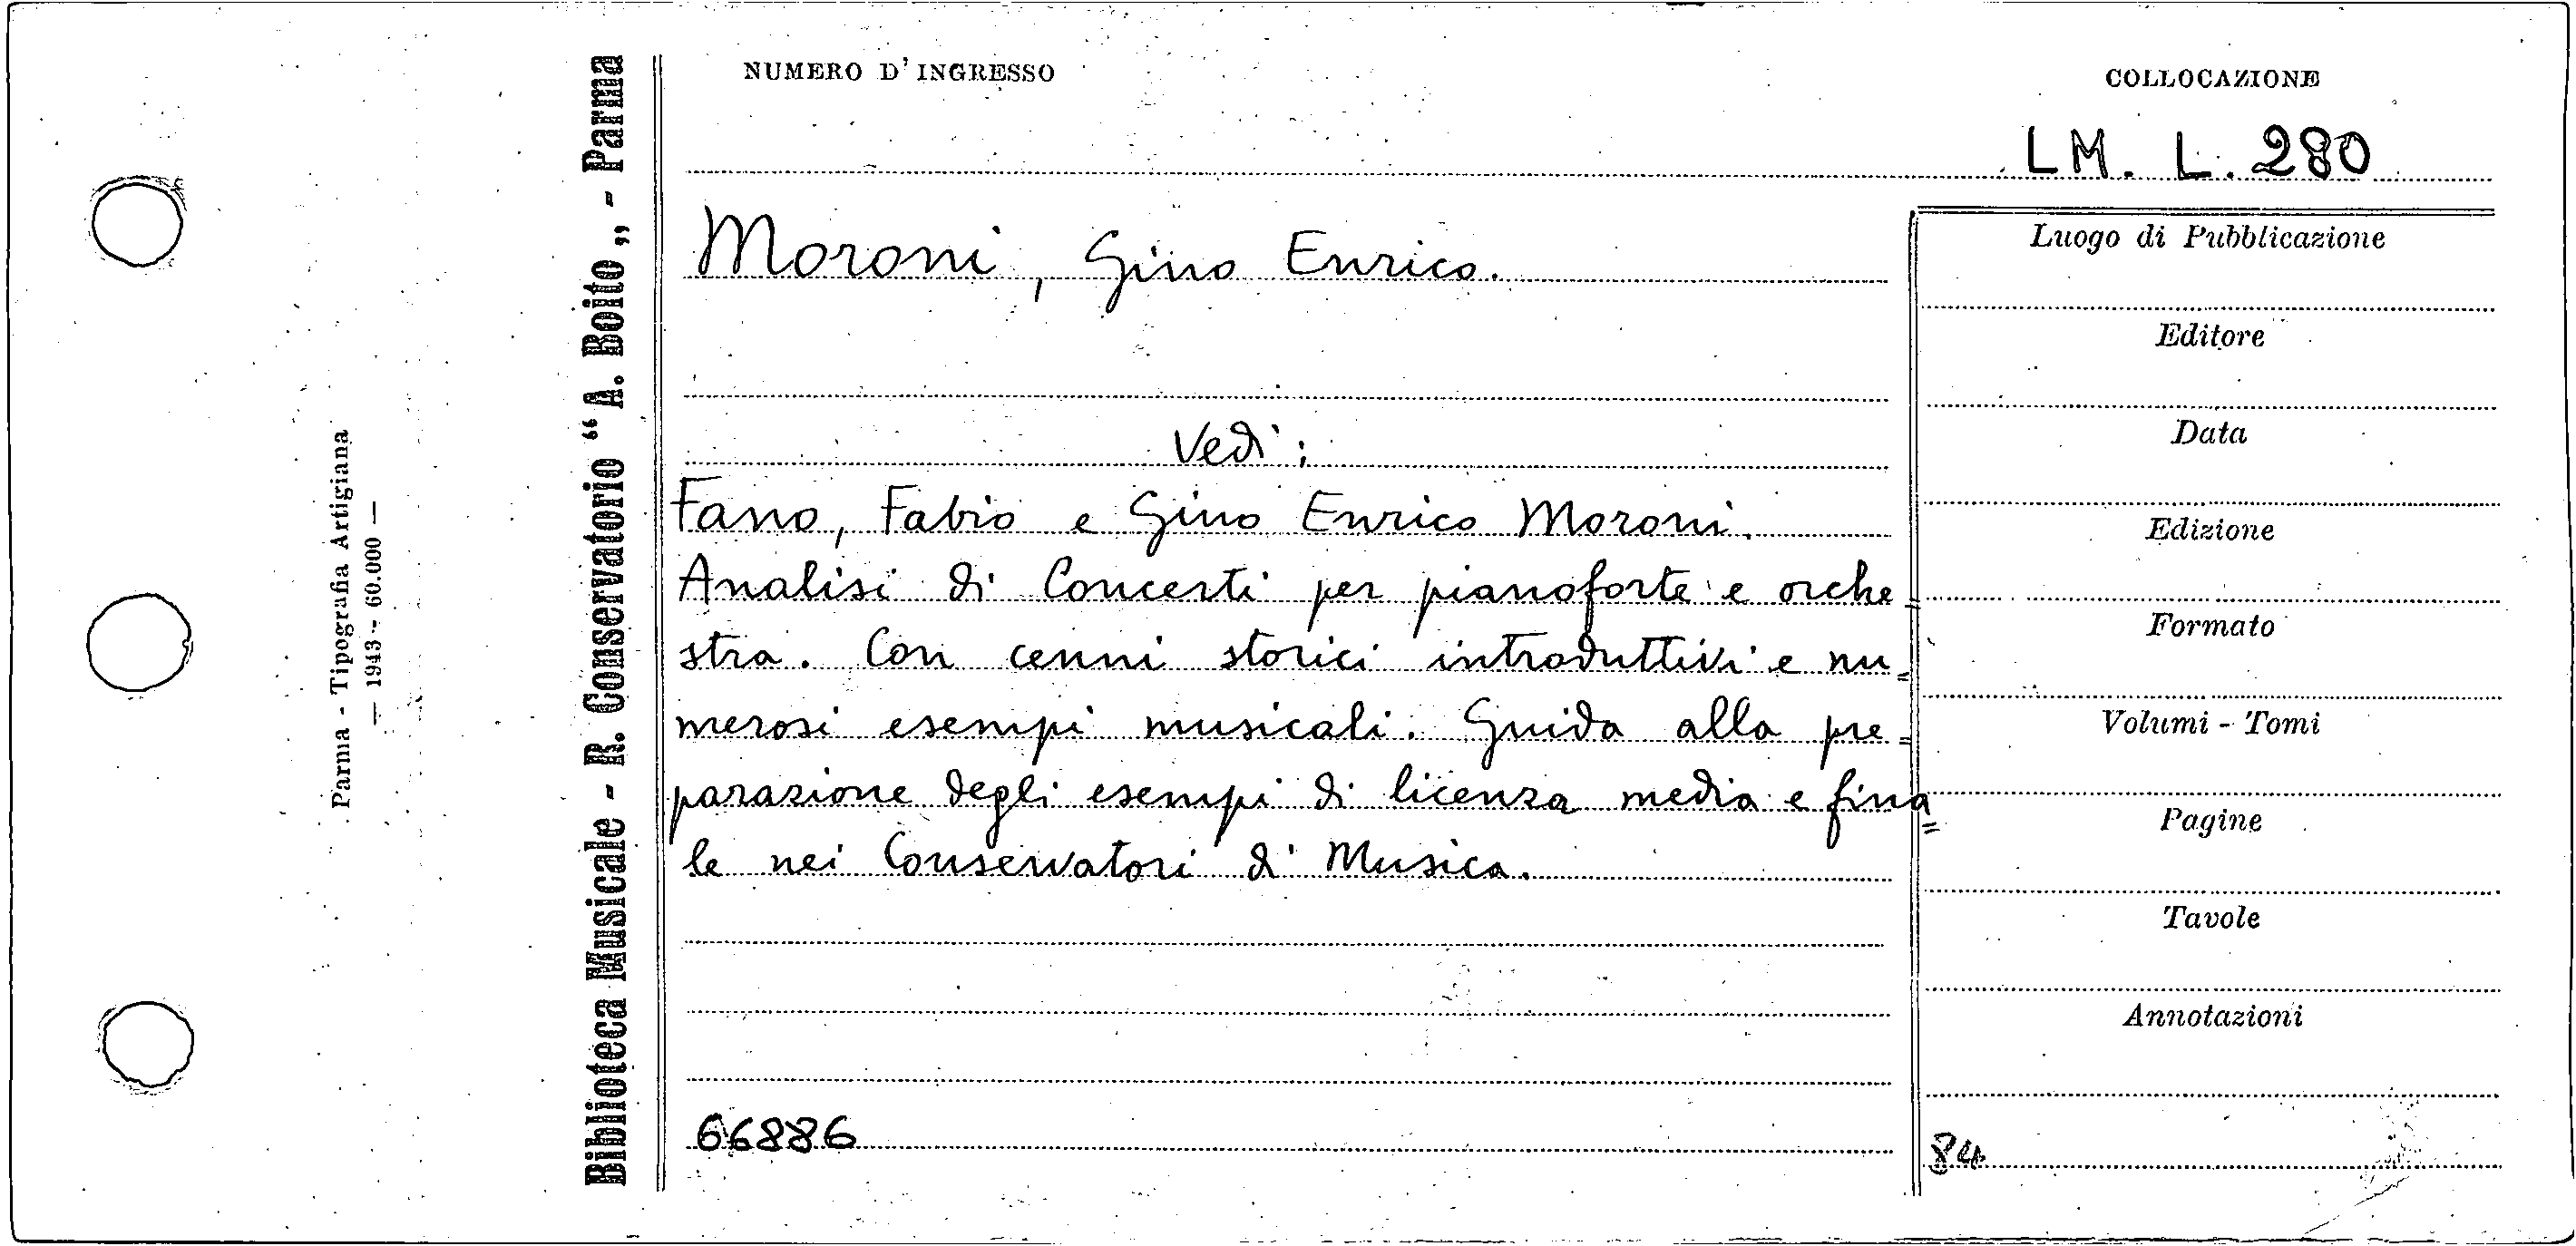 NUMERO D'INGRESSO
COLLOCAZIONE
LM. L. 280
Moroni, Gino Enrico.
Vedi:
Fano, Fabio e Gino Enrico Moroni.
Analisi di Concerti per pianoforte e orche=
stra. Con cenni storici introduttivi e nu=
merosi esempi musicali. Guida alla pre=
parazione degli esempi di licenza media e fina=
le nei Conservatori di Musica.
66886
Luogo di Pubblicazione
Editore
Data
Edizione
Formato
Volumi - Tomi
Pagine
Tavole
Annotazioni
84
Biblioteca Musicale - R. Conservatorio “A. Boito„ - Parma
Parma - Tipografia Artigiana
— 1943 - 60.000 —